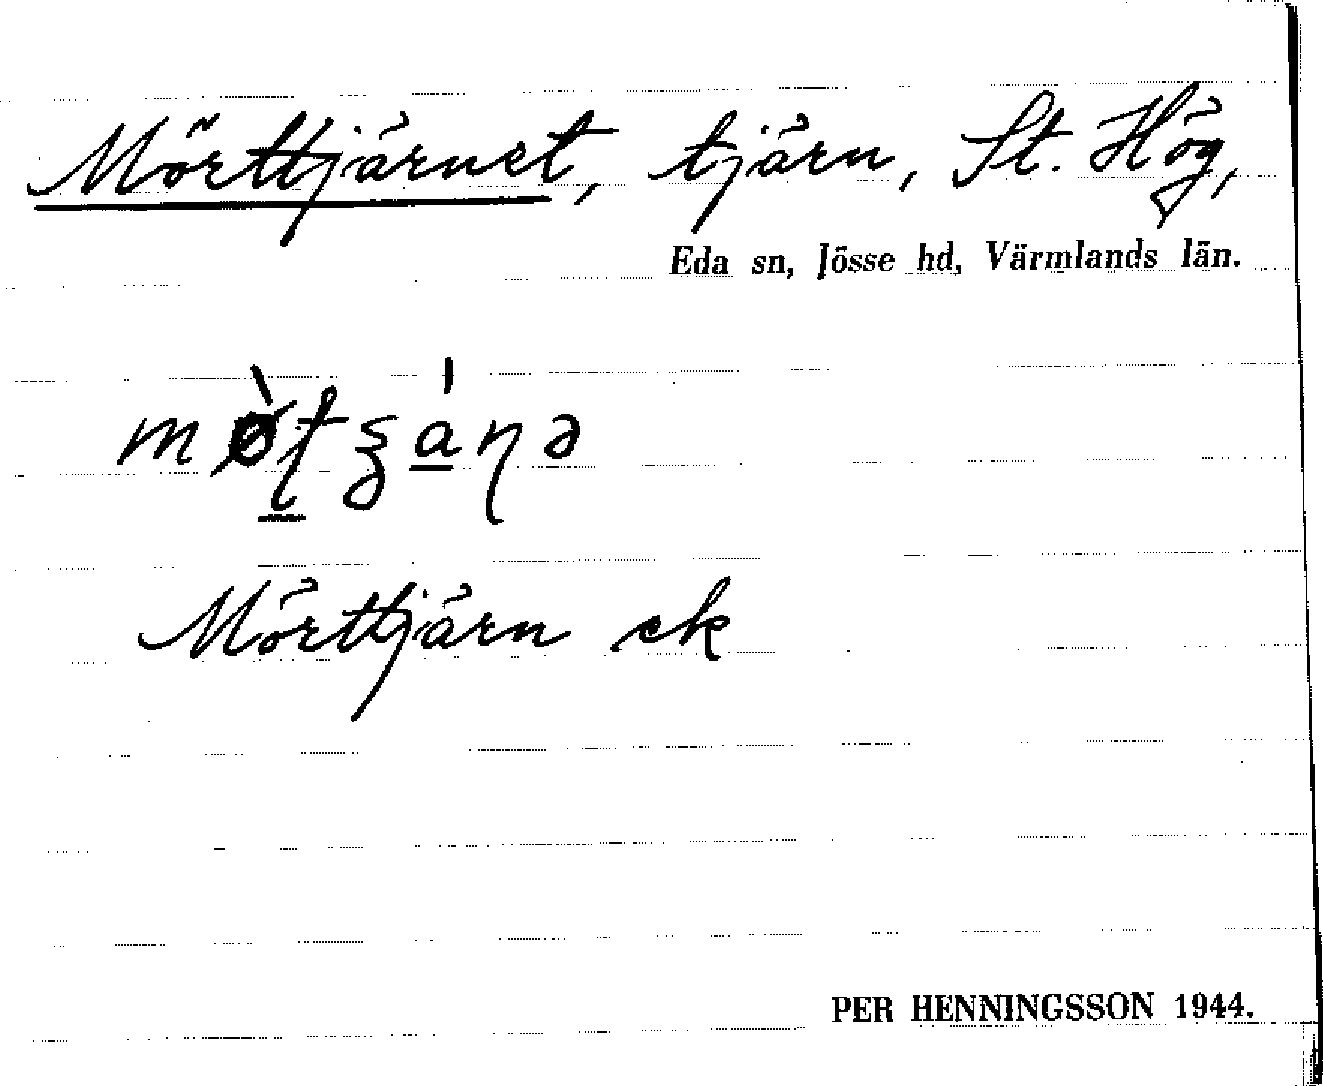 Mörttjärnet, tjärn, St. Hög,
Eda sn, Jösse hd, Värmlands län.
Mörttjärn ek
PER HENNINGSSON 1944.